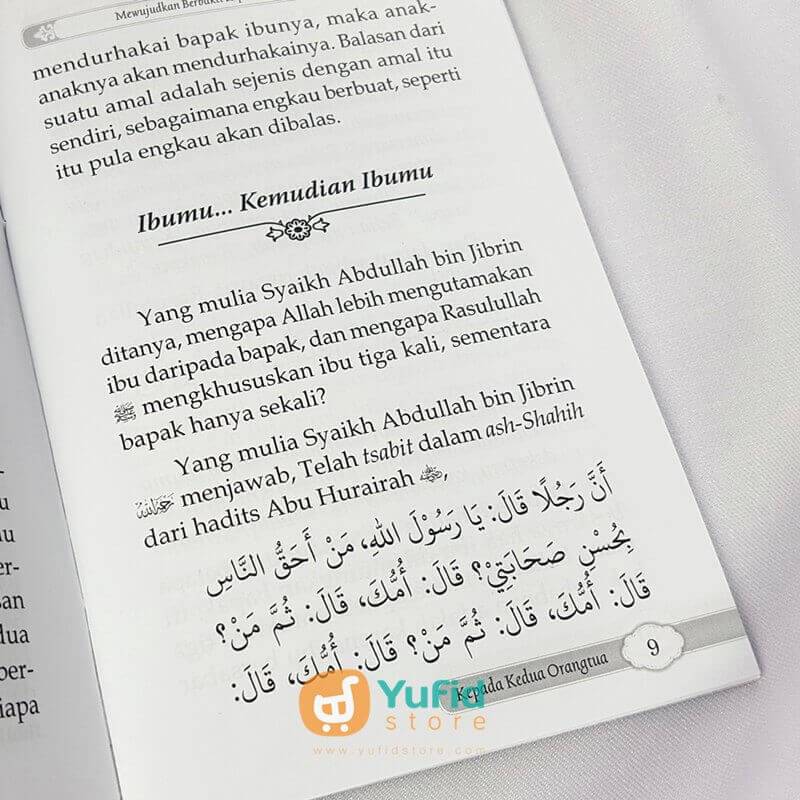 Mewujudkan Berbakti
mendurhakai bapak ibunya, maka anak-
anaknya akan mendurhakainya. Balasan dari
suatu amal adalah sejenis dengan amal itu
sendiri, sebagaimana engkau berbuat, seperti
itu pula engkau akan dibalas.
Ibumu... Kemudian Ibumu
Yang mulia Syaikh Abdullah bin Jibrin
ditanya, mengapa Allah lebih mengutamakan
ibu daripada bapak, dan mengapa Rasulullah
ﷺ mengkhususkan ibu tiga kali, sementara
bapak hanya sekali?
Yang mulia Syaikh Abdullah bin Jibrin
menjawab, Telah tsabit dalam ash-Shahih
dari hadits Abu Hurairah
أَنَّ رَجُلًا قَالَ: يَا رَسُوْلَ اللهِ، مَنْ أَحَقُّ النَّاسِ
بِحُسْنِ صَحَابَتِيْ؟ قَالَ: أُمُّكَ، قَالَ: ثُمَّ مَنْ؟
قَالَ: أُمُّكَ، قَالَ: ثُمَّ مَنْ؟ قَالَ: أُمُّكَ، قَالَ:
Kepada Kedua Orangtua 9
u
er-
san
dua
ber-
iapa
Yufid
store
www.yufidstore.com